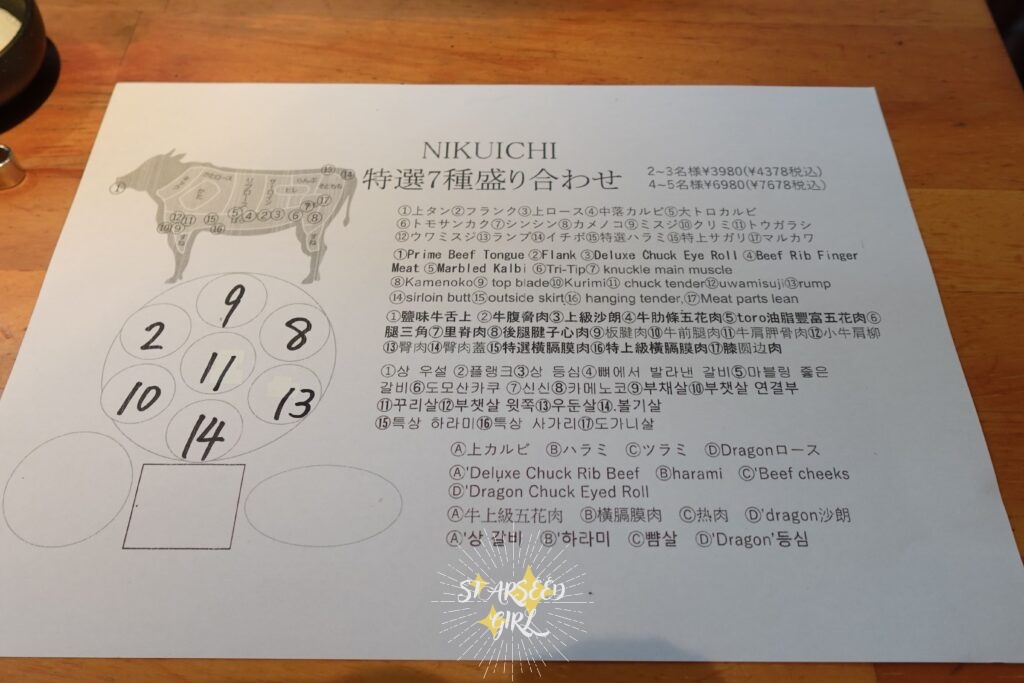 NIKUICHI
特選7種盛り合わせ
2~3名様¥3980(¥4378税込)
4~5名様¥6980(¥7678税込)
①上タン②フランク③上ロース④中落カルビ⑤大トロカルビ
⑥トモサンカク⑦シンシン⑧カメノコ⑨ミスジ⑩クリミ⑪トウガラシ
⑫ウワミスジ⑬ランプ⑭イチボ⑮特選ハラミ⑯特上サガリ⑰マルカワ
①Prime Beef Tongue ②Flank ③Deluxe Chuck Eye Roll ④Beef Rib Finger
Meat ⑤Marbled Kalbi ⑥Tri-Tip⑦ knuckle main muscle
⑧Kamenoko⑨ top blade⑩Kurimi⑪ chuck tender⑫uwamisuji⑬rump
⑭sirloin butt⑮outside skirt⑯ hanging tender,⑰Meat parts lean
①鹽味牛舌上 ②牛腹脅肉③上級沙朗④牛肋條五花肉⑤toro油脂豐富五花肉⑥
腿三角⑦里脊肉⑧後腿腱子心肉⑨板腱肉⑩牛前腿肉⑪牛肩胛骨肉⑫小牛肩柳
⑬臀肉⑭臀肉蓋⑮特選橫膈膜肉⑯特上級橫膈膜肉⑰膝圆边肉
①상 우설 ②플랭크③상 등심④뼈에서 발라낸 갈비⑤마블링 좋은
갈비⑥도모산카쿠 ⑦신신⑧카메노코⑨부채살⑩부챗살 연결부
⑪꾸리살⑫부챗살 윗쪽⑬우둔살⑭.볼기살
⑮특상 하라미⑯특상 사가리⑰도가니살
Ⓐ上カルビ Ⓑハラミ Ⓒツラミ ⒹDragonロース
Ⓐ'Deluxe Chuck Rib Beef Ⓑharami Ⓒ'Beef cheeks
Ⓓ'Dragon Chuck Eyed Roll
Ⓐ牛上級五花肉 Ⓑ橫膈膜肉 Ⓒ热肉 Ⓓ'dragon沙朗
Ⓐ'상 갈비 Ⓑ'하라미 Ⓒ뺨살 Ⓓ'Dragon'등심
9
2 8
11
10 13
14
STARSEED
GIRL